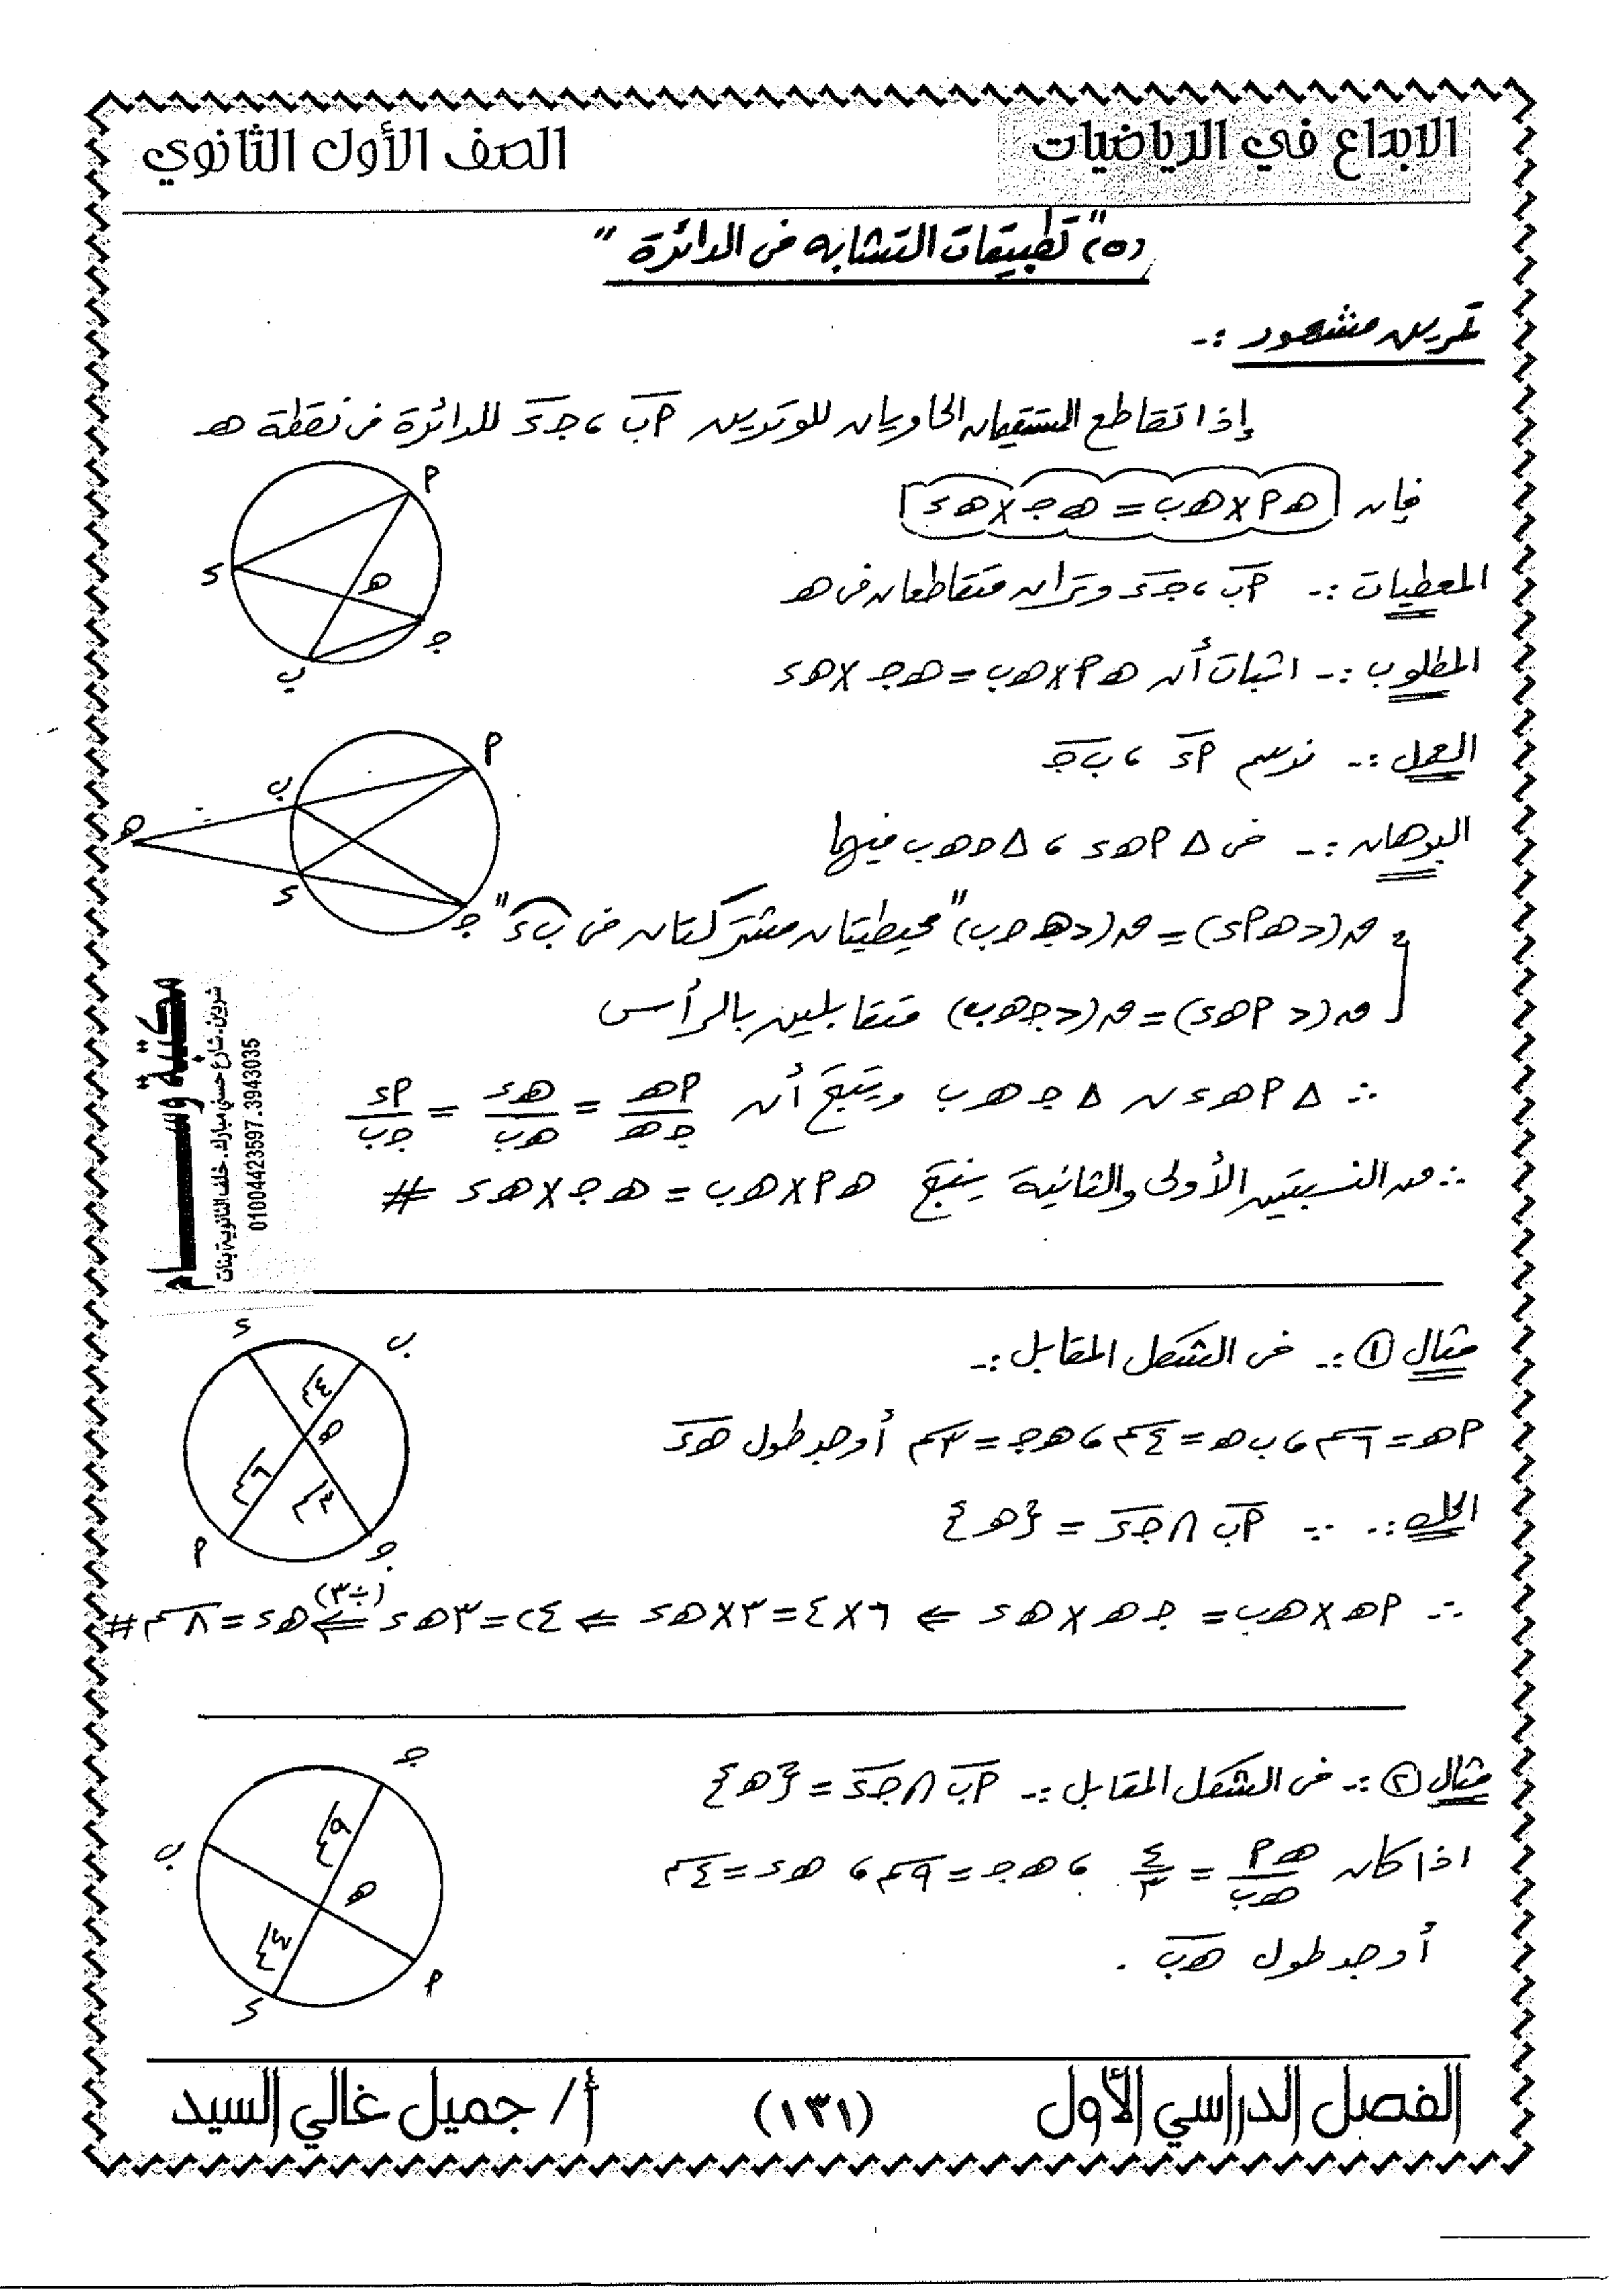 الابداع في الرياضيات
الصف الأول الثانوي
(٥) "تطبيقات التشابه فى الدائرة"
تمرين مشهور :-
إذا تقاطع المستقيمان الحاويان للوترين أب ، جـ د للدائرة فى نقطة هـ
فإن هـ أ × هـ ب = هـ جـ × هـ د
المعطيات :- أب ، جـ د وتران متقاطعان فى هـ
المطلوب :- اثبات أن هـ أ × هـ ب = هـ جـ × هـ د
العمل :- نرسم أ د ، ب جـ
البرهان :- فى Δ أ هـ د ، Δ جـ هـ ب فيهما
ق(> هـ أ د) = ق(> هـ جـ ب) "محيطيتان مشتركتان فى ب د"
ق(> أ هـ د) = ق(> جـ هـ ب) متقابلين بالرأس
∴ Δ أ هـ د ~ Δ جـ هـ ب وينتج أن أهـ/جـ هـ = هـ د/هـ ب = أ د/جـ ب
∴ من النسبتين الأولى والثانية ينتج هـ أ × هـ ب = هـ جـ × هـ د #
مكتبة وســـام
شربين ـ شارع حسني مبارك ـ خلف الثانوية بنات
01004423597 . 3943035
مثال ① :- فى الشكل المقابل :-
أ هـ = ٦سم ، ب هـ = ٤سم ، هـ جـ = ٣سم أوجد طول هـ د
الحل :- ∵ أب ∩ جـ د = {هـ}
∴ أ هـ × هـ ب = جـ هـ × هـ د ⇐ ٦ × ٤ = ٣ × هـ د ⇐ ٢٤ = ٣ هـ د ⇐ (÷٣) هـ د = ٨سم #
مثال ② :- فى الشكل المقابل :- أب ∩ جـ د = {هـ}
اذا كان هـ أ/هـ ب = ٤/٣ ، هـ جـ = ٩سم ، هـ د = ٤سم
أوجد طول هـ ب .
الفصل الدراسي الأول
(١٣١)
أ / جميل غالي السيد